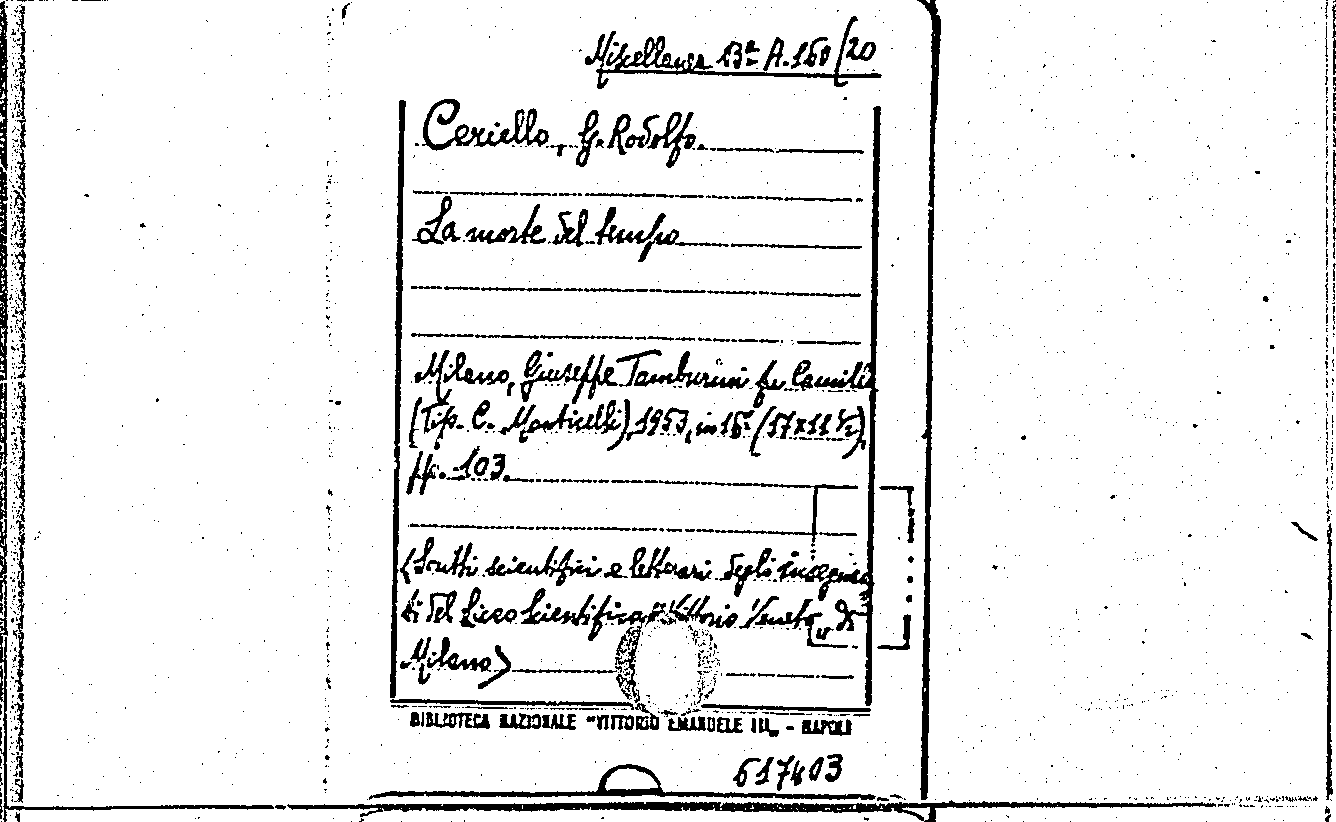 Miscellanea Bª A.160/20
Ceriello, G. Rodolfo.
La morte del tempo
Milano, Giuseppe Tamburini fu Camillo
(Tip. C. Monticelli), 1953, in 16º (17x11 ½),
pp. 103.
(Scritti scientifici e letterari degli insegnan
ti del Liceo Scientifico "Vittorio Veneto" di
Milano)
BIBLIOTECA NAZIONALE "VITTORIO EMANUELE III" - NAPOLI
617403